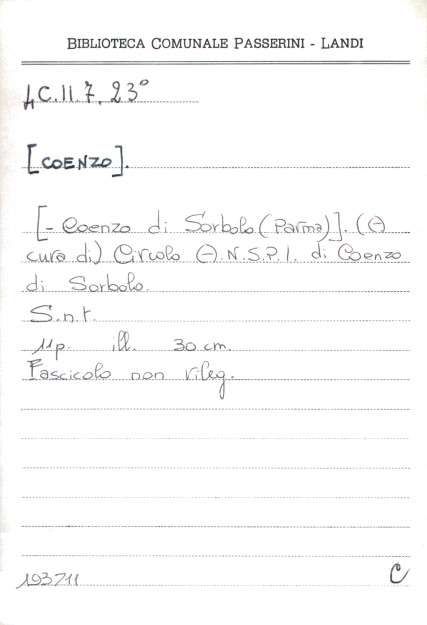 BIBLIOTECA COMUNALE PASSERINI - LANDI
4C.II.7.23°
[COENZO].
[- Coenzo di Sorbolo (Parma)]. (A
cura di) Circolo A.N.S.P.I. di Coenzo
di Sorbolo.
S.n.t.
11p. ill. 30 cm.
Fascicolo non rileg.
193711 C